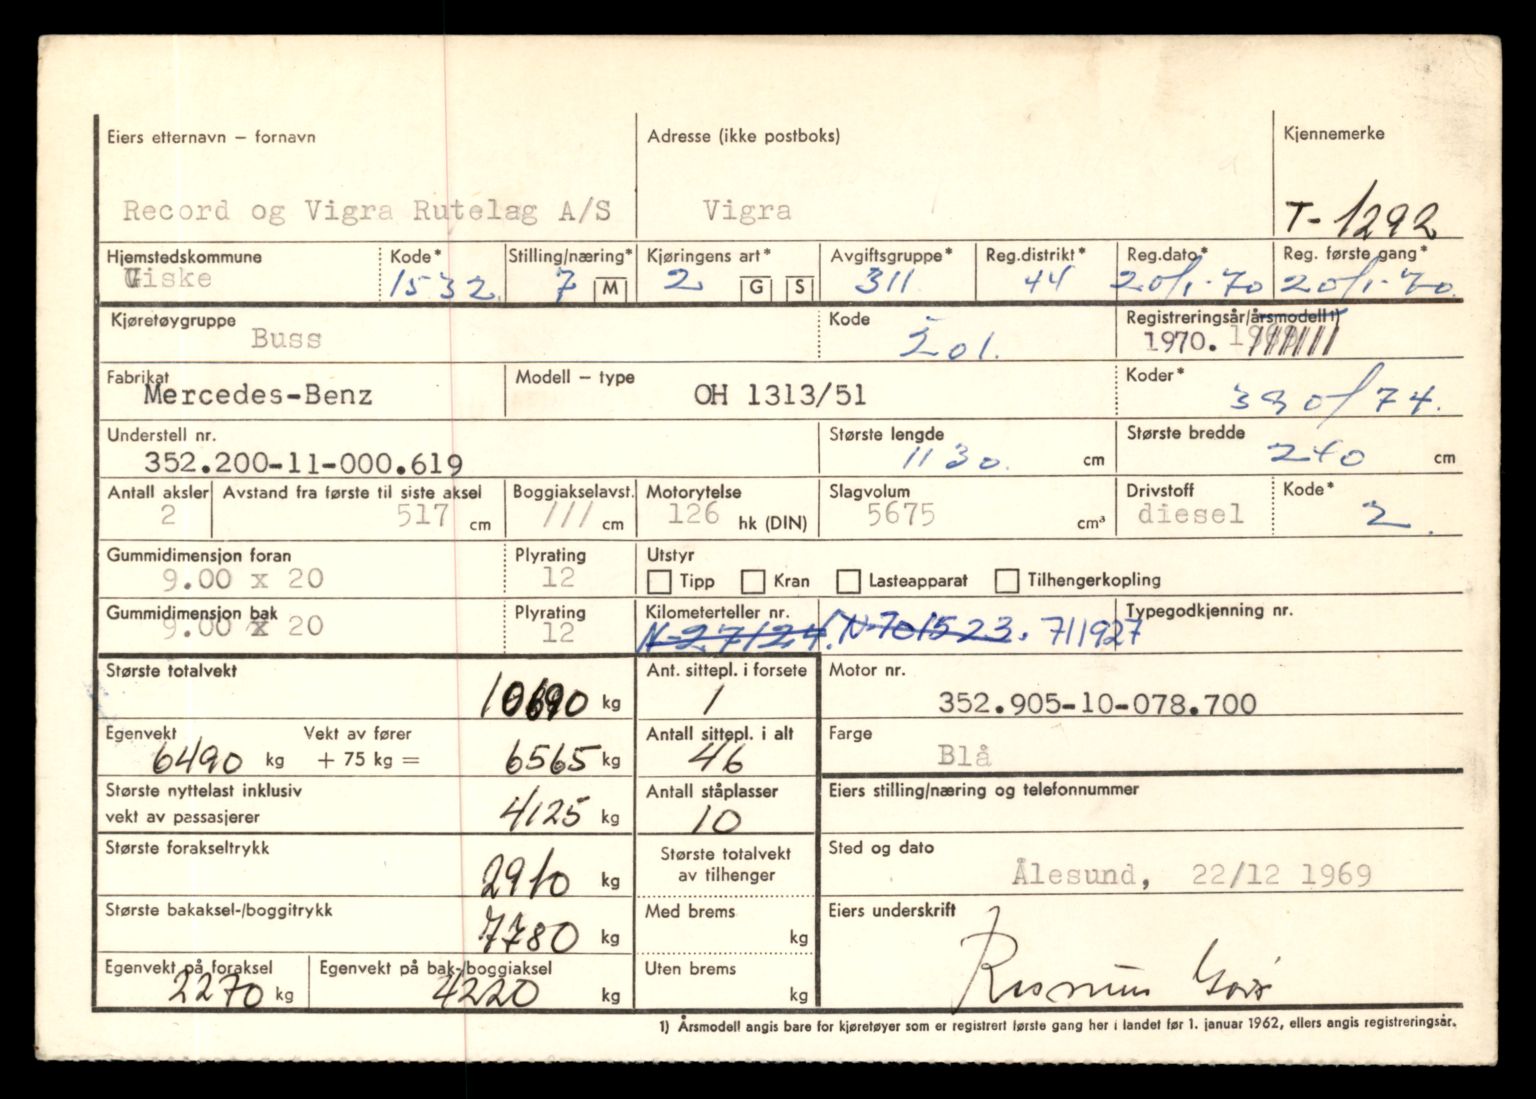 Eiers etternavn – fornavn Adresse (ikke postboks) Kjennemerke
Record og Vigra Rutelag A/S Vigra T-1292
Hjemstedskommune Kode* Stilling/næring* Kjøringens art* Avgiftsgruppe* Reg.distrikt* Reg.dato* Reg. første gang*
Giske 1532 7 M 2 G S 311 44 20/1-70 20/1-70.
Kjøretøygruppe Kode Registreringsår/årsmodell 1)
Buss 201. 1970.
Fabrikat Modell – type Koder*
Mercedes-Benz OH 1313/51 390/74.
Understell nr. Største lengde Største bredde
352.200-11-000.619 1130. cm 240 cm
Antall aksler Avstand fra første til siste aksel Boggiakselavst. Motorytelse Slagvolum Drivstoff Kode*
2 517 cm /// cm 126 hk (DIN) 5675 cm³ diesel 2.
Gummidimensjon foran Plyrating Utstyr
9.00 x 20 12 Tipp Kran Lasteapparat Tilhengerkopling
Gummidimensjon bak Plyrating Kilometerteller nr. Typegodkjenning nr.
9.00 x 20 12 N-27124. N-701523. 711927
Største totalvekt Ant. sittepl. i forsete Motor nr.
10690 kg 1 352.905-10-078.700
Egenvekt Vekt av fører Antall sittepl. i alt Farge
6490 kg + 75 kg = 6565 kg 46 Blå
Største nyttelast inklusiv Antall ståplasser Eiers stilling/næring og telefonnummer
vekt av passasjerer 4125 kg 10
Største forakseltrykk Største totalvekt Sted og dato
2910 kg av tilhenger Ålesund, 22/12 1969
Største bakaksel-/boggitrykk Med brems Eiers underskrift
7780 kg kg
Egenvekt på foraksel Egenvekt på bak-/boggiaksel Uten brems
2270 kg 4220 kg kg
1) Årsmodell angis bare for kjøretøyer som er registrert første gang her i landet før 1. januar 1962, ellers angis registreringsår.